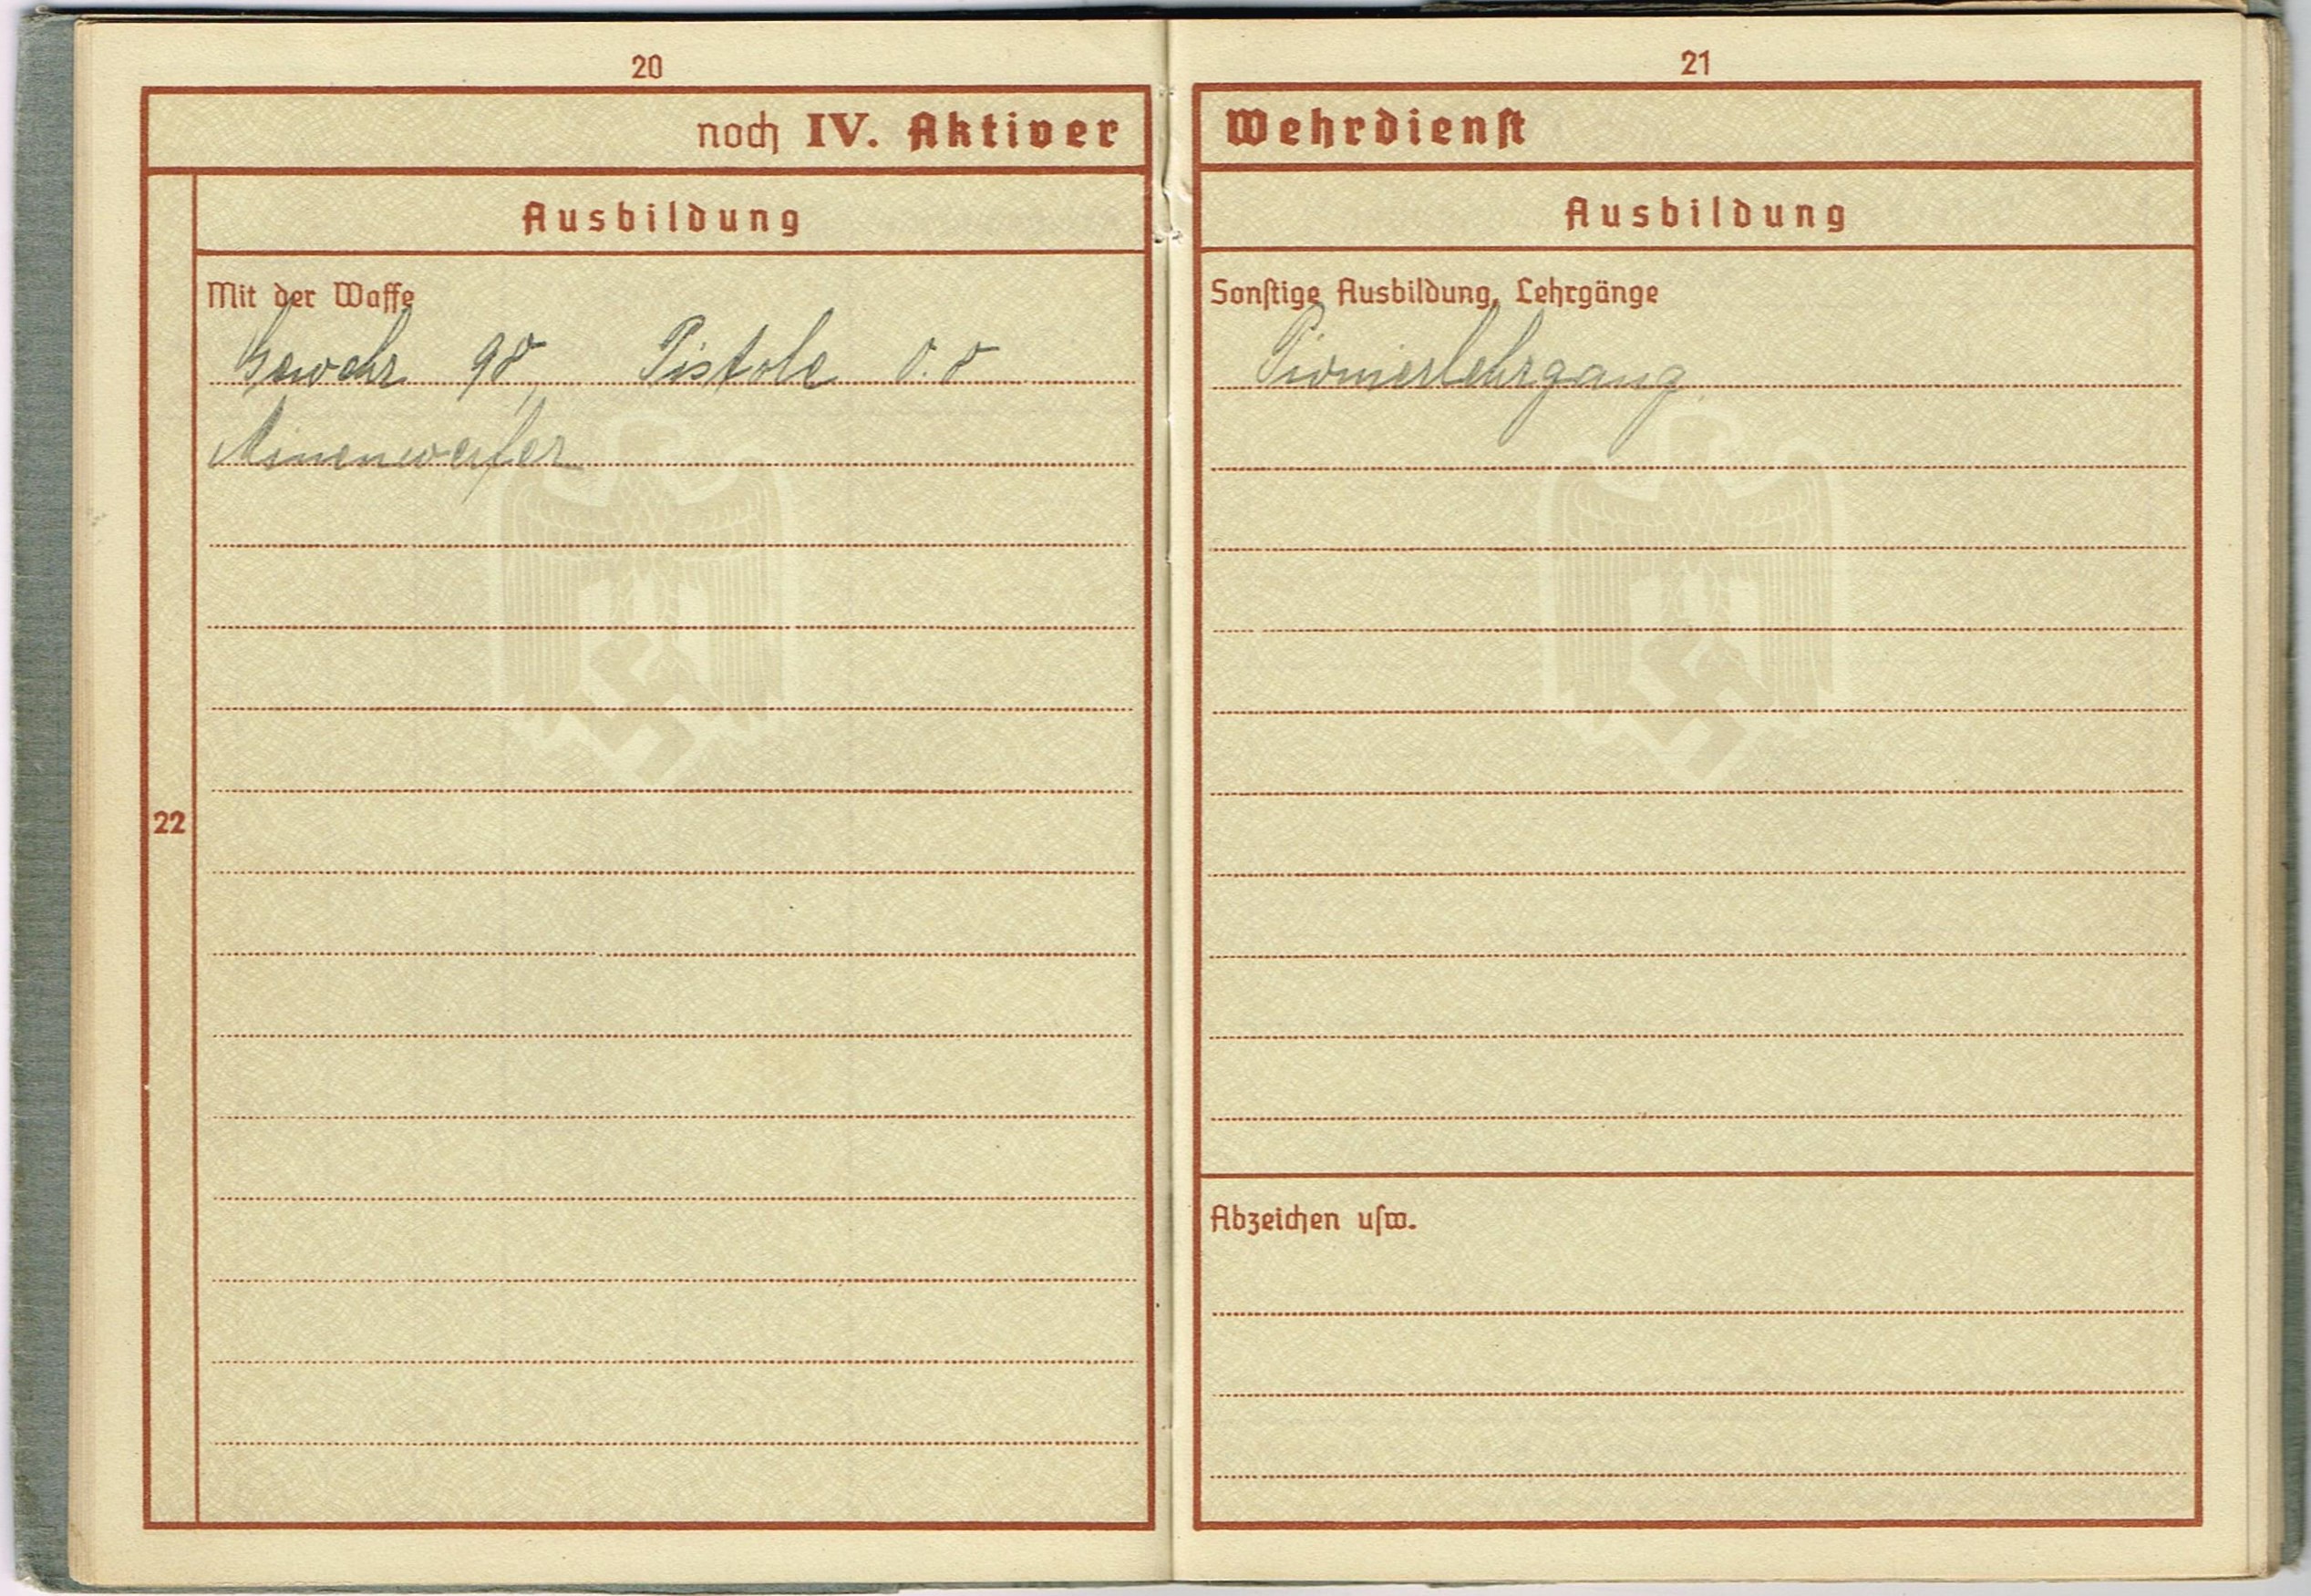 20
noch IV. Aktiver
Ausbildung
22
Mit der Waffe
Gewehr 98, Pistole 0.8
Minenwerfer
21
Wehrdienst
Ausbildung
Sonstige Ausbildung, Lehrgänge
Pionierlehrgang
Abzeichen usw.